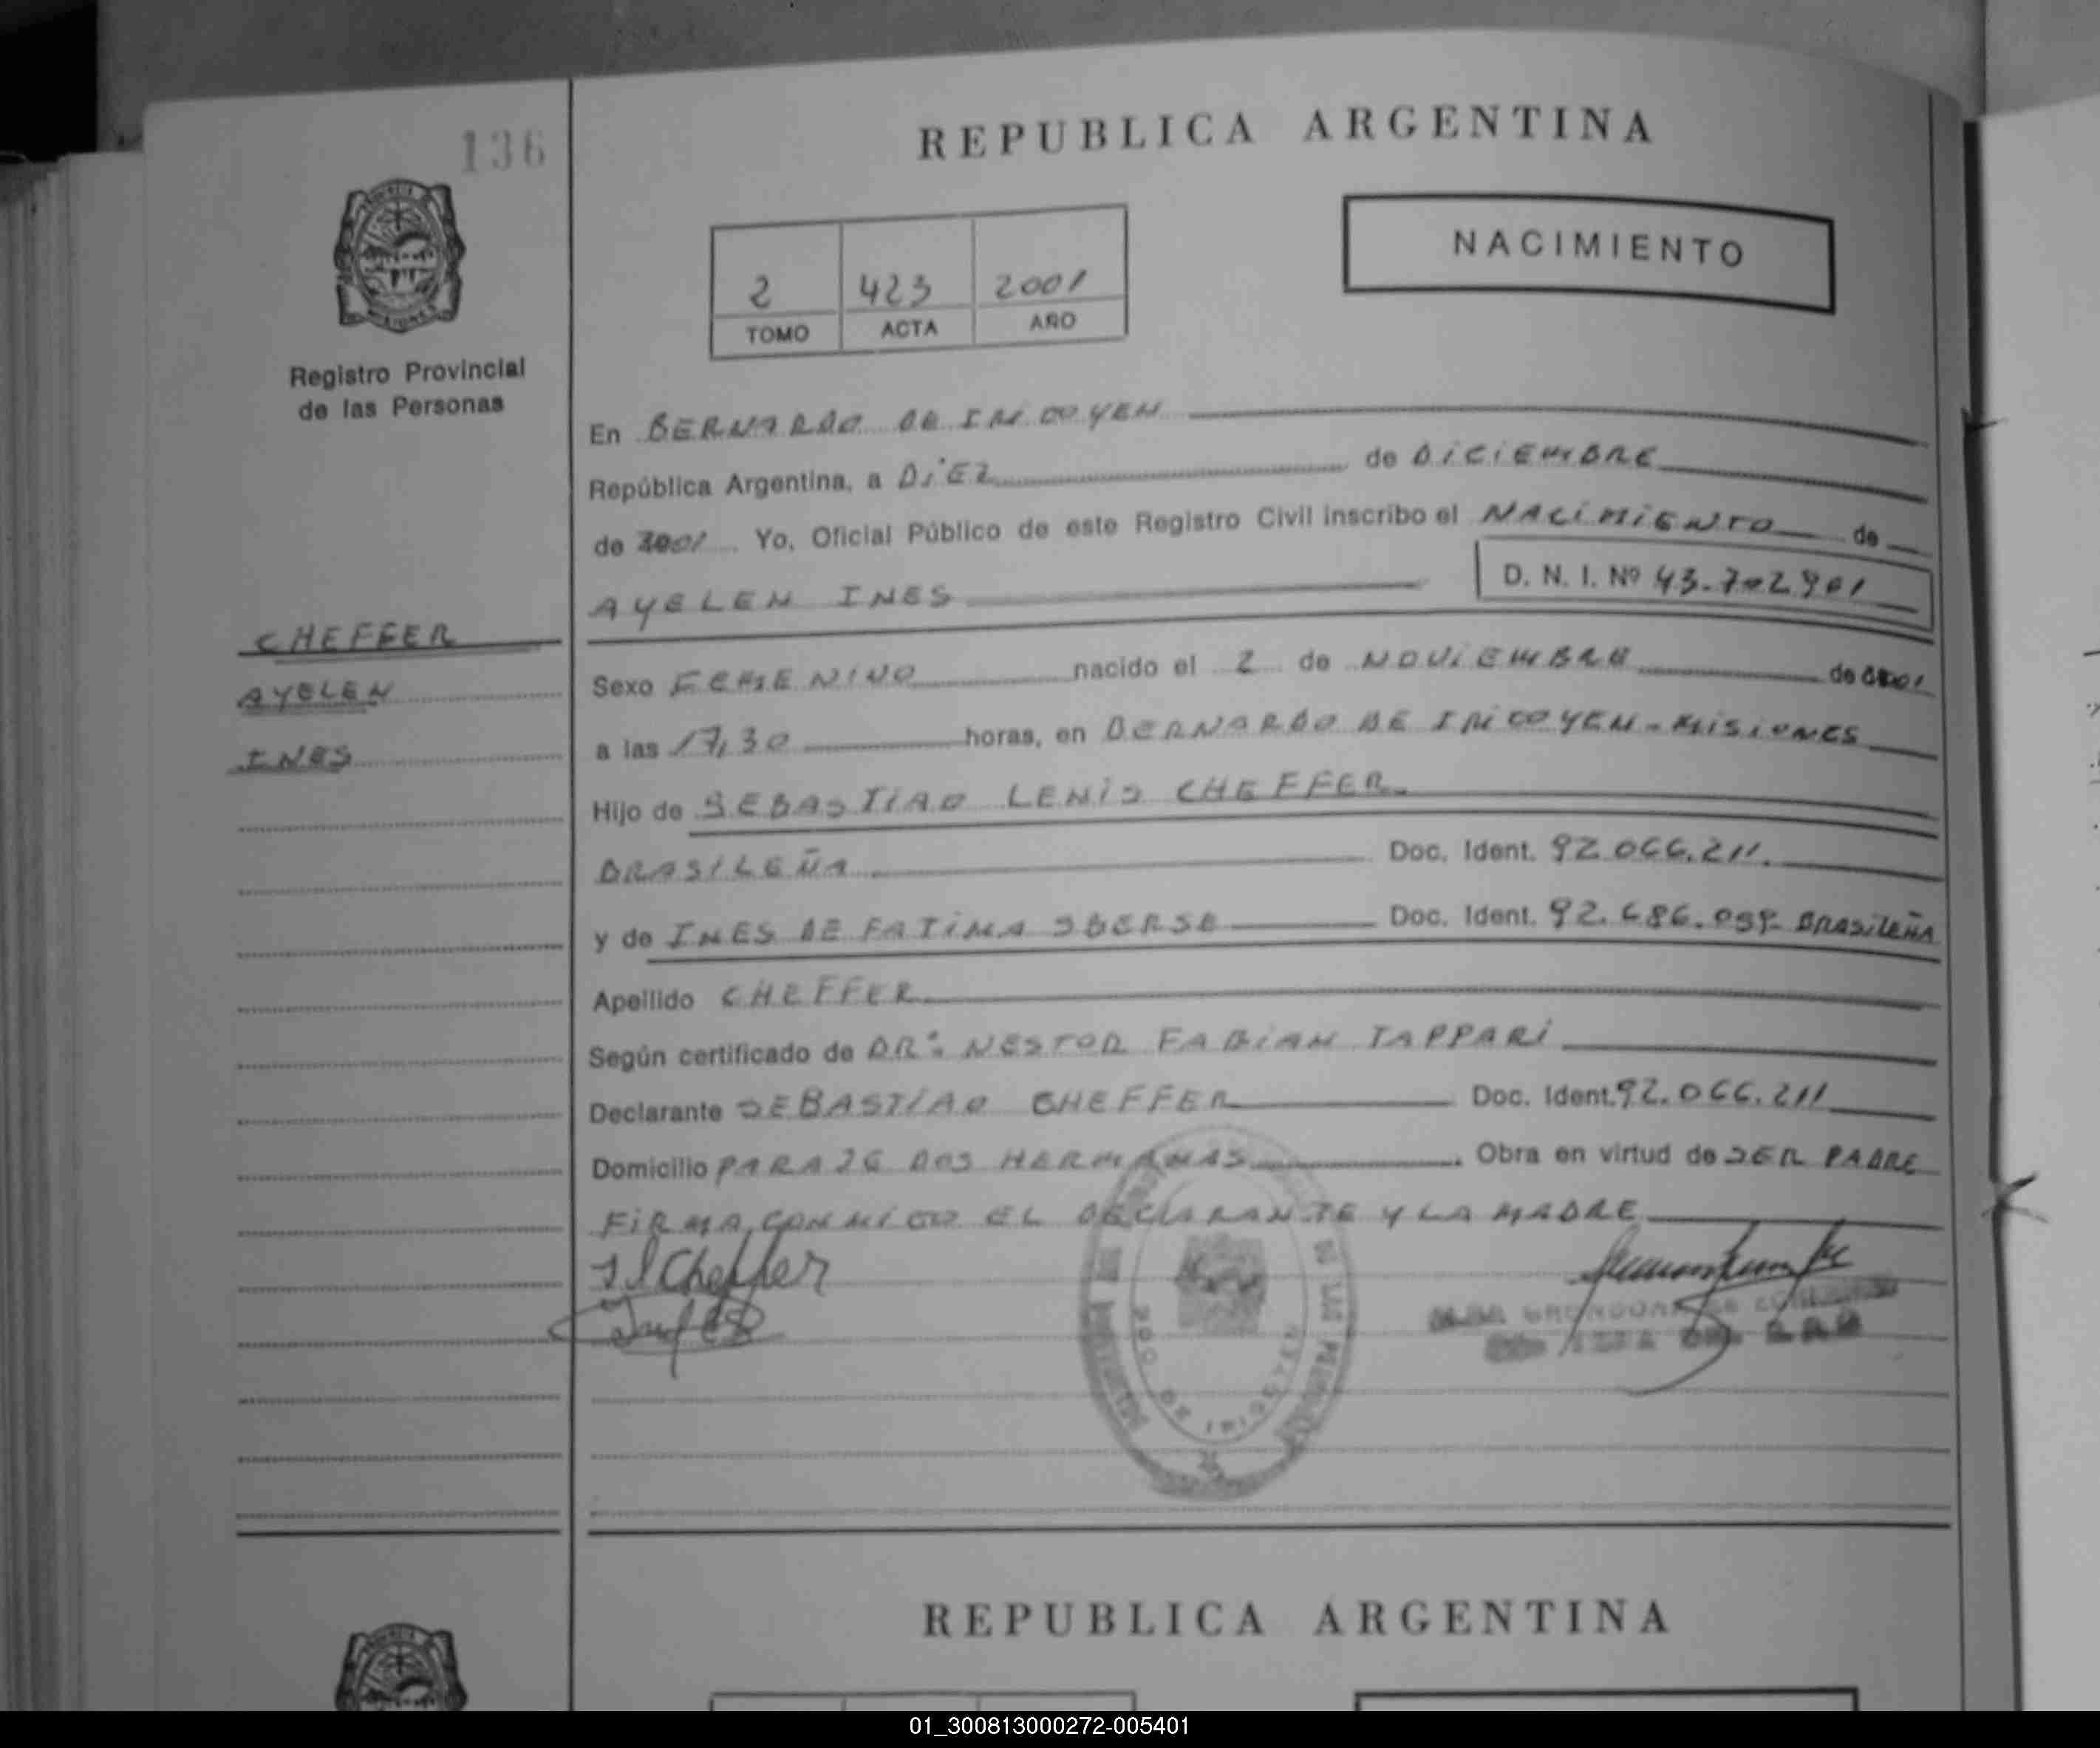 136
REPUBLICA ARGENTINA
NACIMIENTO
2 423 2001
TOMO ACTA AÑO
Registro Provincial
de las Personas
En BERNARDO DE IRIGOYEN
República Argentina, a DIEZ de DICIEMBRE
de 2001 Yo, Oficial Público de este Registro Civil inscribo el NACIMIENTO de
AYELEN INES D. N. I. Nº 43.702.901
CHEFFER
AYELEN
INES
Sexo FEMENINO nacido el 2 de NOVIEMBRE de 2001
a las 17,30 horas, en BERNARDO DE IRIGOYEN - MISIONES
Hijo de SEBASTIAO LENIS CHEFFER
BRASILEÑA Doc. Ident. 92.066.211.
y de INES DE FATIMA SBERSE Doc. Ident. 92.686.059- BRASILEÑA
Apellido CHEFFER
Según certificado de DR. NESTOR FABIAN TAPPARI
Declarante SEBASTIAO CHEFFER Doc. Ident. 92.066.211
Domicilio PARAJE DOS HERMANAS Obra en virtud de SER PADRE
FIRMA CONMIGO EL DECLARANTE Y LA MADRE
Cheffer
REPUBLICA ARGENTINA
01_300813000272-005401